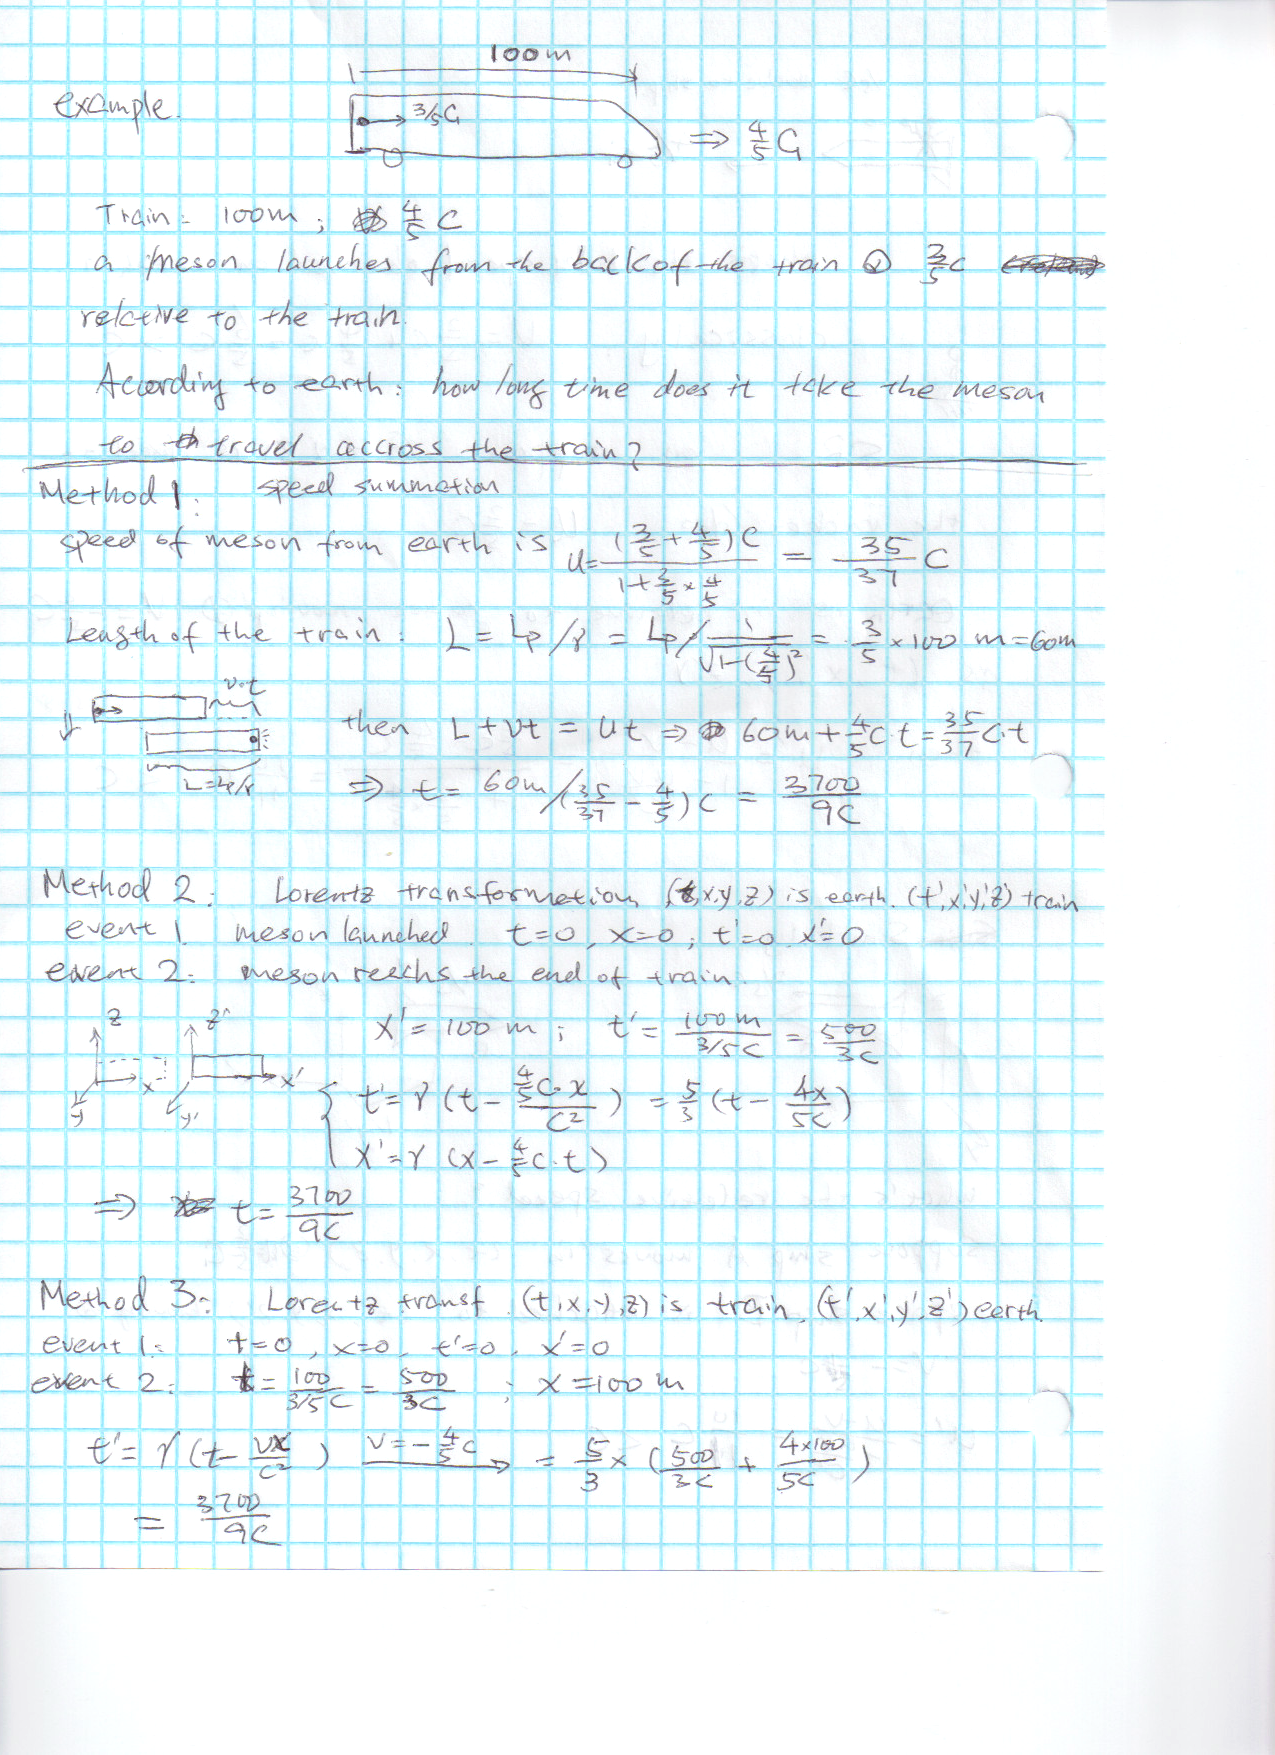 100m
example.
3/5 C
⇒ 4/5 C
Train: 100m ; 4/5 C
a meson launches from the back of the train @ 3/5 C
relative to the train.
According to earth: how long time does it take the meson
to travel accross the train?
Method 1: speed summation
speed of meson from earth is u = (3/5 + 4/5)C / (1 + 3/5 × 4/5) = 35/37 C
Length of the train: L = Lp/γ = Lp / (1/√(1-(4/5)²)) = 3/5 × 100 m = 60m
v·t
then L + vt = ut ⇒ 60m + 4/5 C·t = 35/37 C·t
L = Lp/γ
⇒ t = 60m / (35/37 - 4/5) C = 3700/9C
Method 2: Lorentz transformation, (t,x,y,z) is earth. (t',x',y',z') train
event 1. meson launched. t=0, x=0; t'=0 x'=0
event 2: meson reachs the end of train.
z z'
x' = 100 m ; t' = 100 m / 3/5C = 500/3C
x x'
y y'
t' = γ (t - 4/5 C·x / C²) = 5/3 (t - 4x/5C)
x' = γ (x - 4/5 C·t)
⇒ t = 3700/9C
Method 3: Lorentz transf. (t,x,y,z) is train, (t',x',y',z') earth.
event 1: t=0, x=0, t'=0, x'=0
event 2: t = 100 / 3/5C = 500/3C ; x = 100 m
t' = γ (t - vx/C²) v = -4/5 C = 5/3 × (500/3C + 4×100/5C)
= 3700/9C